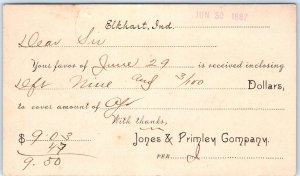 Elkhart, Ind.
JUN 30 1887
Dear Sir
Your favor of June 29 is received inclosing
Dft Nine and 3/100 Dollars,
to cover amount of a/c
With thanks,
$ 9.03 Jones & Primley Company.
47
9.50 PER J